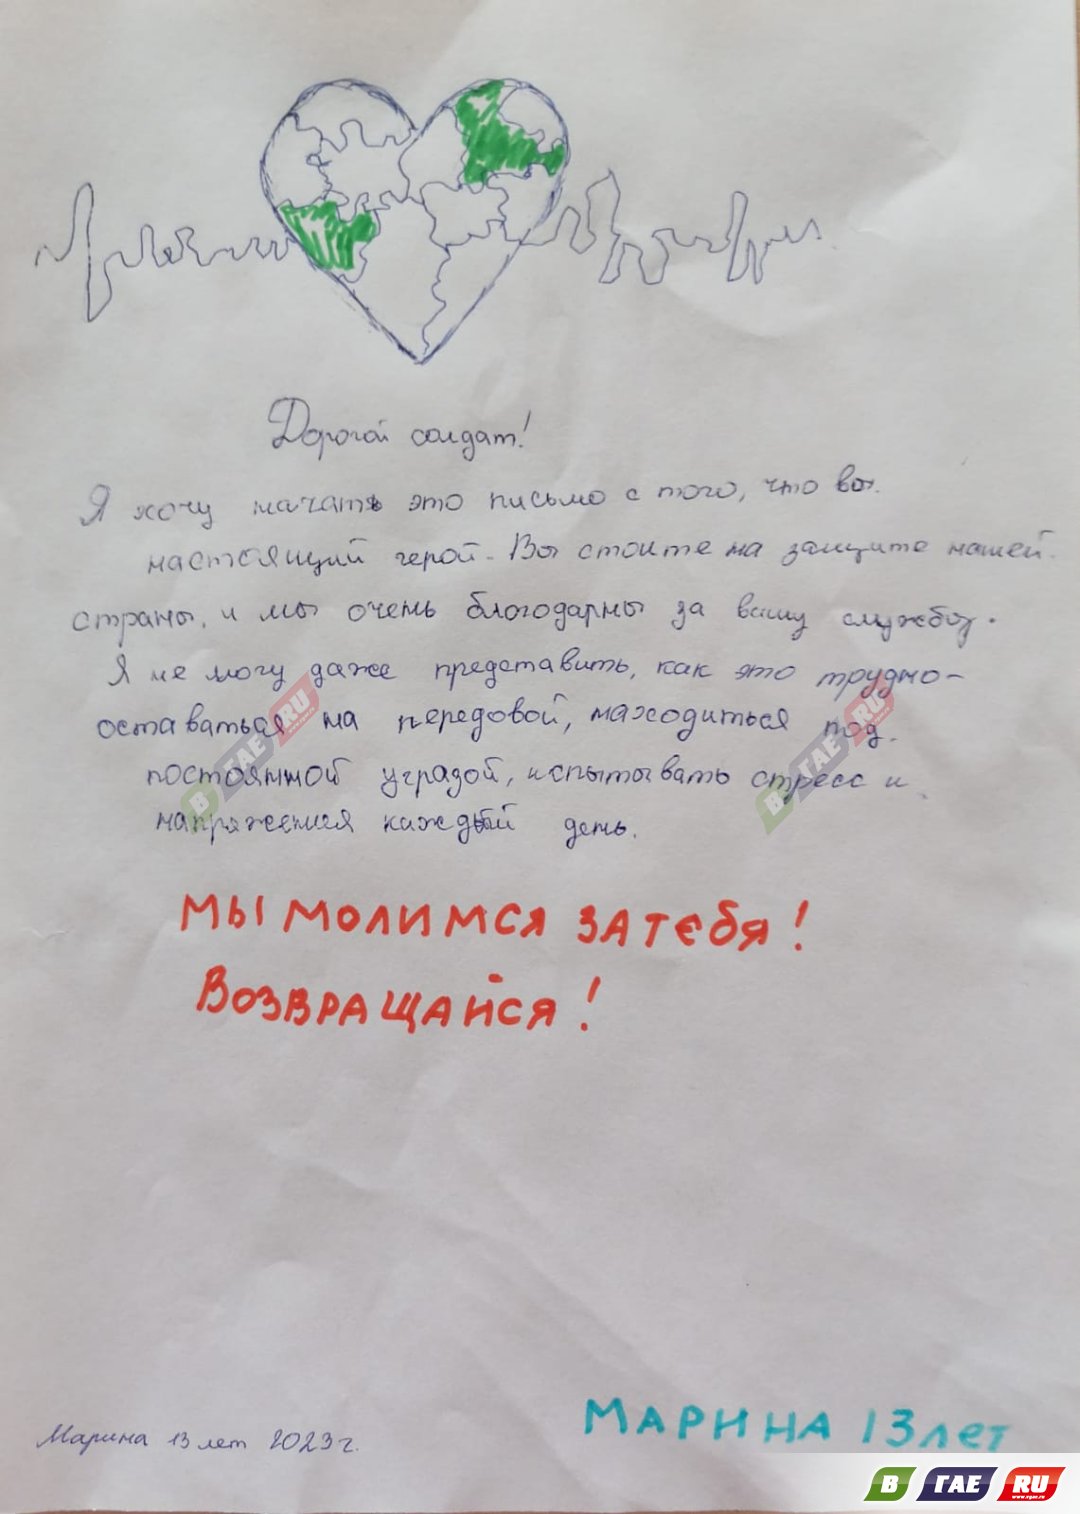 Дорогой солдат!
Я хочу начать это письмо с того, что вы
настоящий герой. Вы стоите на защите нашей
страны, и мы очень благодарны за вашу службу.
Я не могу даже представить, как это трудно-
оставаться на передовой, находиться под
постоянной угразой, испытывать стресс и
напряжения каждый день.
МЫ МОЛИМСЯ ЗА ТЕБЯ!
ВОЗВРАЩАЙСЯ!
МАРИНА 13 лет
Марина 13 лет 2023 г.
В ГАЕ RU
www.vgae.ru
В ГАЕ RU
В ГАЕ RU